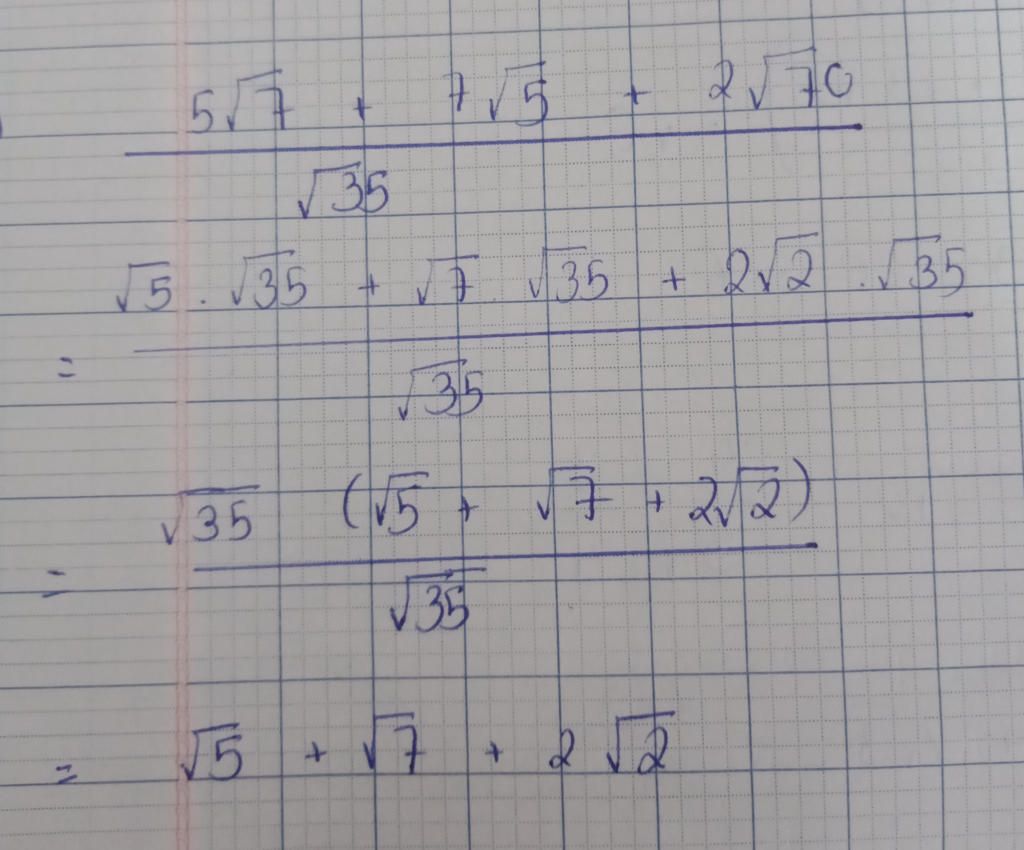 5√7 + 7√5 + 2√70
√35
√5 . √35 + √7 . √35 + 2√2 . √35
=
√35
√35 (√5 + √7 + 2√2)
=
√35
= √5 + √7 + 2√2